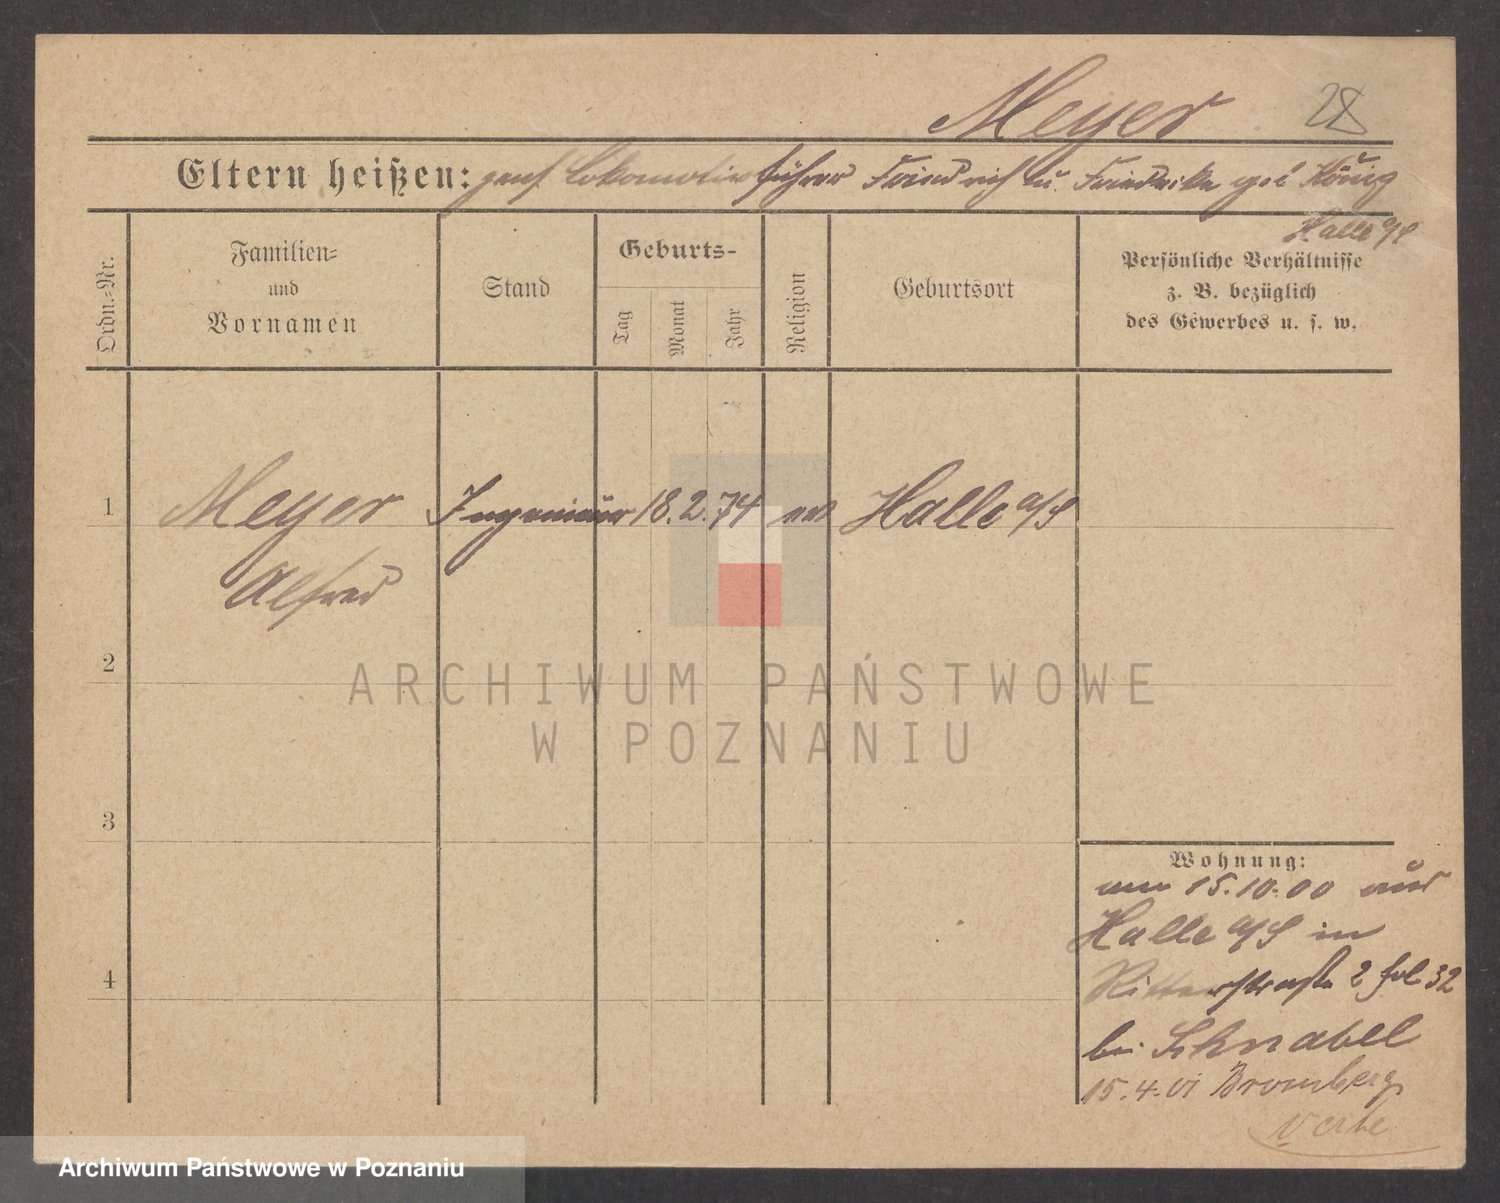 Meyer 28
Eltern heißen: pens. Lokomotivführer Friedrich u. Friederike geb König
Halle a/S
Ordn.-Nr.
Familien-
und
Vornamen
Stand
Geburts-
Tag
Monat
Jahr
Religion
Geburtsort
Persönliche Verhältnisse
z. B. bezüglich
des Gewerbes u. s. w.
1 Meyer Ingenieur 18. 2. 74 ev Halle a/S
Alfred
2
ARCHIWUM PAŃSTWOWE
W POZNANIU
3
Wohnung:
am 15.10.00 aus
Halle a/S in
4
Ritterstraße 2 fol 32
bei Schnabel
15.4.01 Bromberg
Archiwum Państwowe w Poznaniu